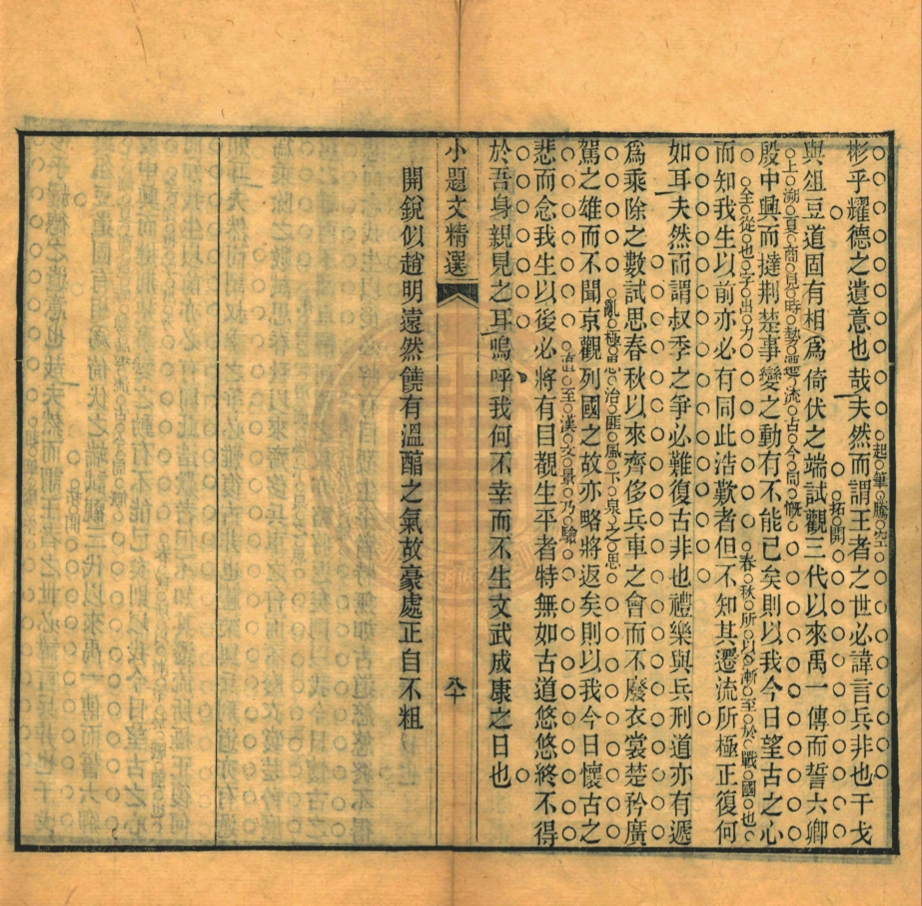 彬乎耀德之遺意也哉夫然而謂王者之世必諱言兵非也干戈
起筆騰空
拓開
與俎豆道固有相爲倚伏之端試觀三代以來禹一傳而誓六卿
上溯夏商見時勢遷流古今同慨
殷中興而撻荆楚事變之動有不能已矣則以我今日望古之心
全從也字出力
春秋所以漸至於戰國也
而知我生以前亦必有同此浩歎者但不知其遷流所極正復何
如耳夫然而謂叔季之爭必難復古非也禮樂與兵刑道亦有遞
爲乘除之數試思春秋以來齊侈兵車之會而不廢衣裳楚矜廣
亂極思治匪風下泉之思
駕之雄而不聞京觀列國之故亦略將返矣則以我今日懷古之
直至漢文景乃驗
悲而念我生以後必將有目覩生平者特無如古道悠悠終不得
於吾身親見之耳嗚呼我何不幸而不生文武成康之日也
小題文精選
八十
開銳似趙明遠然饒有溫醞之氣故豪處正自不粗